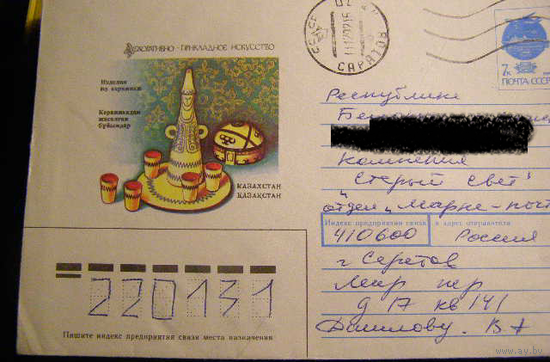 ДЕКОРАТИВНО - ПРИКЛАДНОЕ ИСКУССТВО
Изделие
из керамики
Керамикадан
жасалған
бұйымдар
КАЗАХСТАН
ҚАЗАҚСТАН
САРАТОВ
7к
ПОЧТА СССР
Республике
компания
"Старый свет"
отдел "Марке-
Индекс предприятия связи и адрес отправителя
410600 Россия
г Саратов
пер
д 17 кв 141
Данилову. В А
220131
Пишите индекс предприятия связи места назначения
www.ay.by